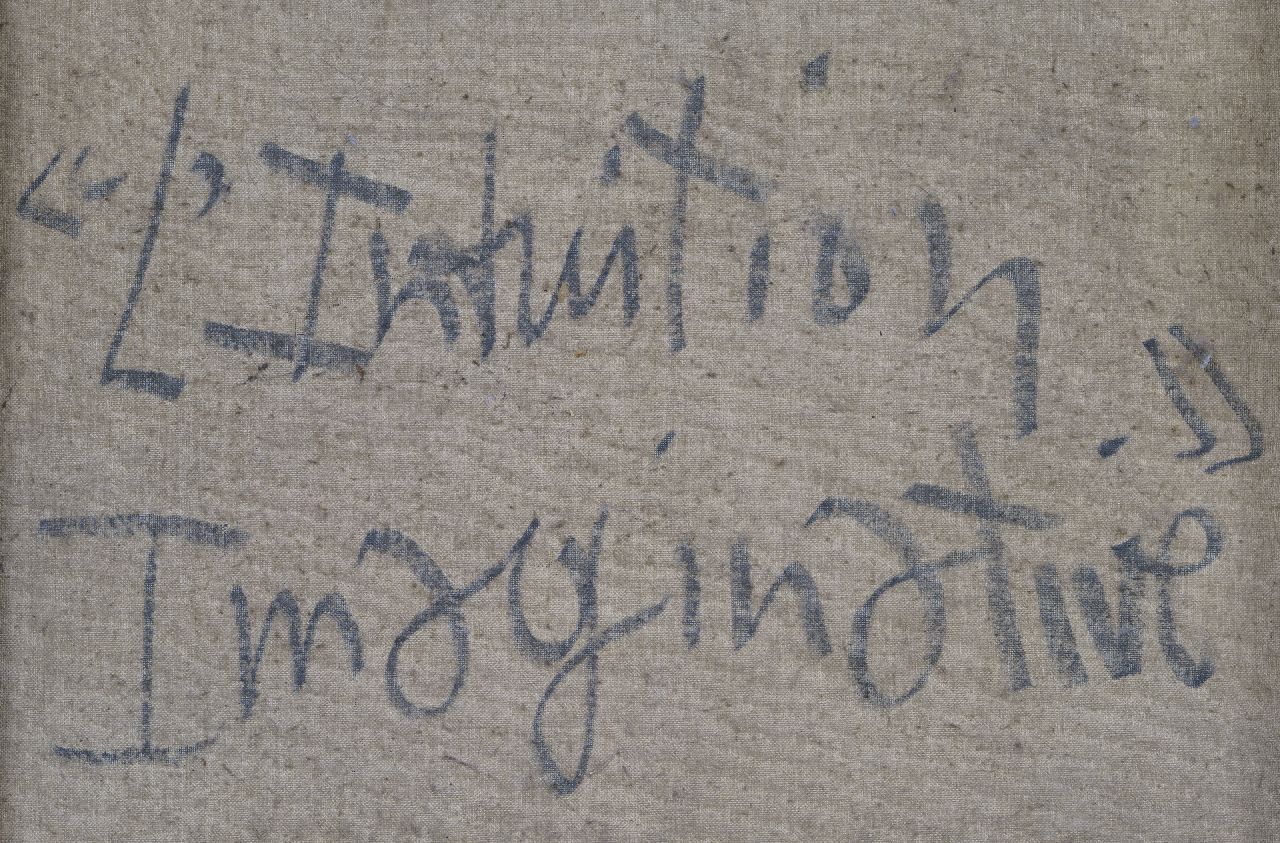 "L'Intuition
Imaginative"